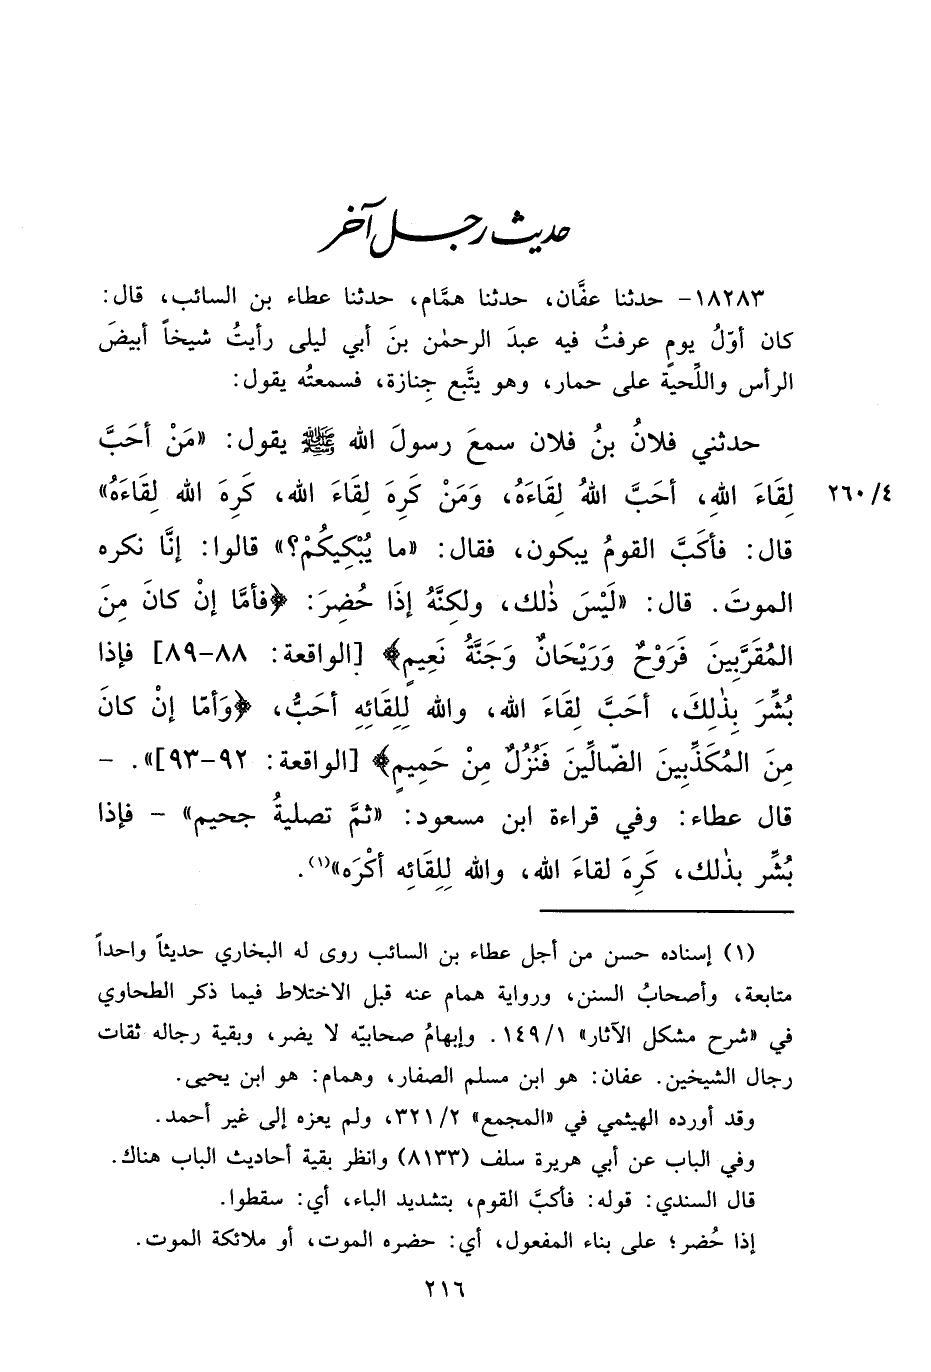 حديث رجل آخر
١٨٢٨٣- حدثنا عفَّان، حدثنا همَّام، حدثنا عطاء بن السائب، قال:
كان أوّلُ يومٍ عرفتُ فيه عبدَ الرحمٰن بنَ أبي ليلى رأيتُ شيخاً أبيضَ
الرأس واللِّحية على حمار، وهو يتَّبع جِنازة، فسمعتُه يقول:
حدثني فلانُ بنُ فلان سمعَ رسولَ الله ﷺ يقول: «مَنْ أحَبَّ
لِقَاءَ اللهِ، أحَبَّ اللهُ لِقَاءَهُ، وَمَنْ كَرِهَ لِقَاءَ الله، كَرِهَ الله لِقَاءَهُ» ٢٦٠/٤
قال: فأكَبَّ القومُ يبكون، فقال: «ما يُبْكِيكُمْ؟» قالوا: إنَّا نكره
الموتَ. قال: «لَيْسَ ذٰلك، ولكِنَّهُ إذَا حُضِرَ: ﴿فأمَّا إنْ كانَ مِنَ
المُقَرَّبِينَ فَرَوْحٌ وَرَيْحَانٌ وَجَنَّةُ نَعِيمٍ﴾ [الواقعة: ٨٨-٨٩] فإذا
بُشِّرَ بِذٰلِكَ، أحَبَّ لِقَاءَ الله، والله لِلِقَائِهِ أحَبُّ، ﴿وَأمّا إنْ كانَ
مِنَ المُكَذِّبِينَ الضّالِّينَ فَنُزُلٌ مِنْ حَمِيمٍ﴾ [الواقعة: ٩٢-٩٣]». -
قال عطاء: وفي قراءة ابن مسعود: «ثمَّ تصليةُ جحيم» - فإذا
بُشِّر بذٰلك، كَرِهَ لقاءَ الله، والله لِلِقَائه أكْرَه»(١).
(١) إسناده حسن من أجل عطاء بن السائب روى له البخاري حديثاً واحداً
متابعة، وأصحابُ السنن، ورواية همام عنه قبل الاختلاط فيما ذكر الطحاوي
في «شرح مشكل الآثار» ١٤٩/١. وإبهامُ صحابيّه لا يضر، وبقية رجاله ثقات
رجال الشيخين. عفان: هو ابن مسلم الصفار، وهمام: هو ابن يحيى.
وقد أورده الهيثمي في «المجمع» ٣٢١/٢، ولم يعزه إلى غير أحمد.
وفي الباب عن أبي هريرة سلف (٨١٣٣) وانظر بقية أحاديث الباب هناك.
قال السندي: قوله: فأكبَّ القوم، بتشديد الباء، أي: سقطوا.
إذا حُضر؛ على بناء المفعول، أي: حضره الموت، أو ملائكة الموت.
٢١٦